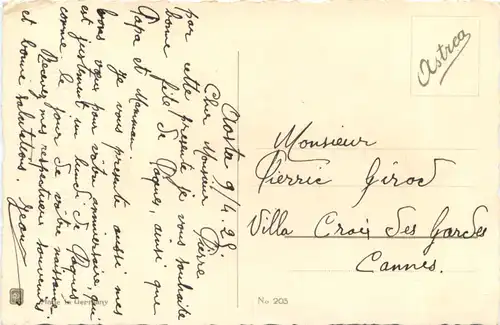 Aosta 9/4.28
Cher Monsieur Pierre
par cette présente je vous souhaite
bonne fête de Pâques, ainsi que
Papa et Maman.
Je vous présente aussi mes
vœux pour votre anniversaire qui
est justement un lundi de Pâques
comme le jour de votre naissance.
Recevez mes respectueux souvenirs
et bonne salutations. Jean
Astrea
Monsieur
Pierre Girod
Villa Croix des Gardes
Cannes.
Made in Germany
No 205